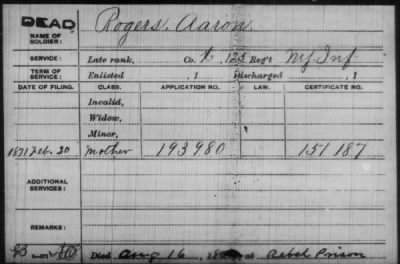 DEAD
NAME OF SOLDIER: Rogers, Aaron.
SERVICE: Late rank, Co. 125 Reg't N.Y. Inf.
TERM OF SERVICE: Enlisted , 1 Discharged , 1
DATE OF FILING. CLASS. APPLICATION NO. LAW. CERTIFICATE NO.
Invalid,
Widow,
Minor,
1871 Feb. 20 Mother 193980 151187
ADDITIONAL SERVICES:
REMARKS:
Died Aug 16, at Rebel Prison